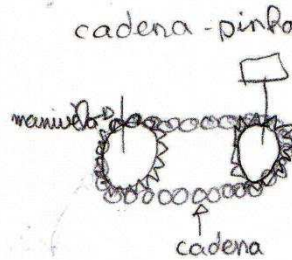 cadena - piño
manivela
cadena